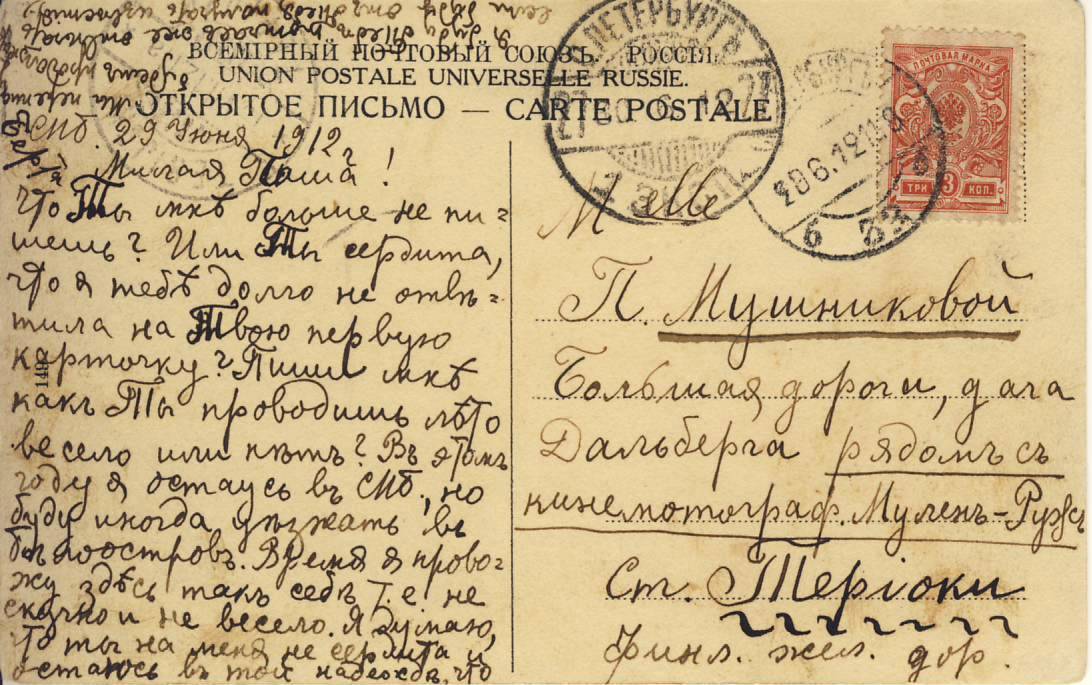 ВСЕМІРНЫЙ ПОЧТОВЫЙ СОЮЗЪ. РОССІЯ.
UNION POSTALE UNIVERSELLE RUSSIE.
ОТКРЫТОЕ ПИСЬМО — CARTE POSTALE
СПб. 29 Іюня 1912 г.
Милая Паша!
Что Ты мнѣ больше не пи-
шешь? Или Ты сердита,
что я тебѣ долго не отвѣ-
тила на Твою первую
карточку? Пиши мнѣ
какъ Ты проводишь лѣто
весело или нѣтъ? Въ этомъ
году я остаусь въ СПб., но
буду иногда уѣзжать въ
Бѣлоостровъ. Время я прово-
жу здѣсь такъ себѣ т.е не
скучно и не весело. Я думаю,
что ты на меня не сердита и
остаюсь въ той надеждѣ, что
149
M elle
П. Мушниковой
Большая дороги, дача
Дальберга рядомъ съ
кинемотограф. Муленъ-Ружъ
Ст. Теріоки
Финл. жел. дор.
ПОЧТОВАЯ МАРКА
ТРИ 3 КОП.
С.ПЕТЕРБУРГЪ